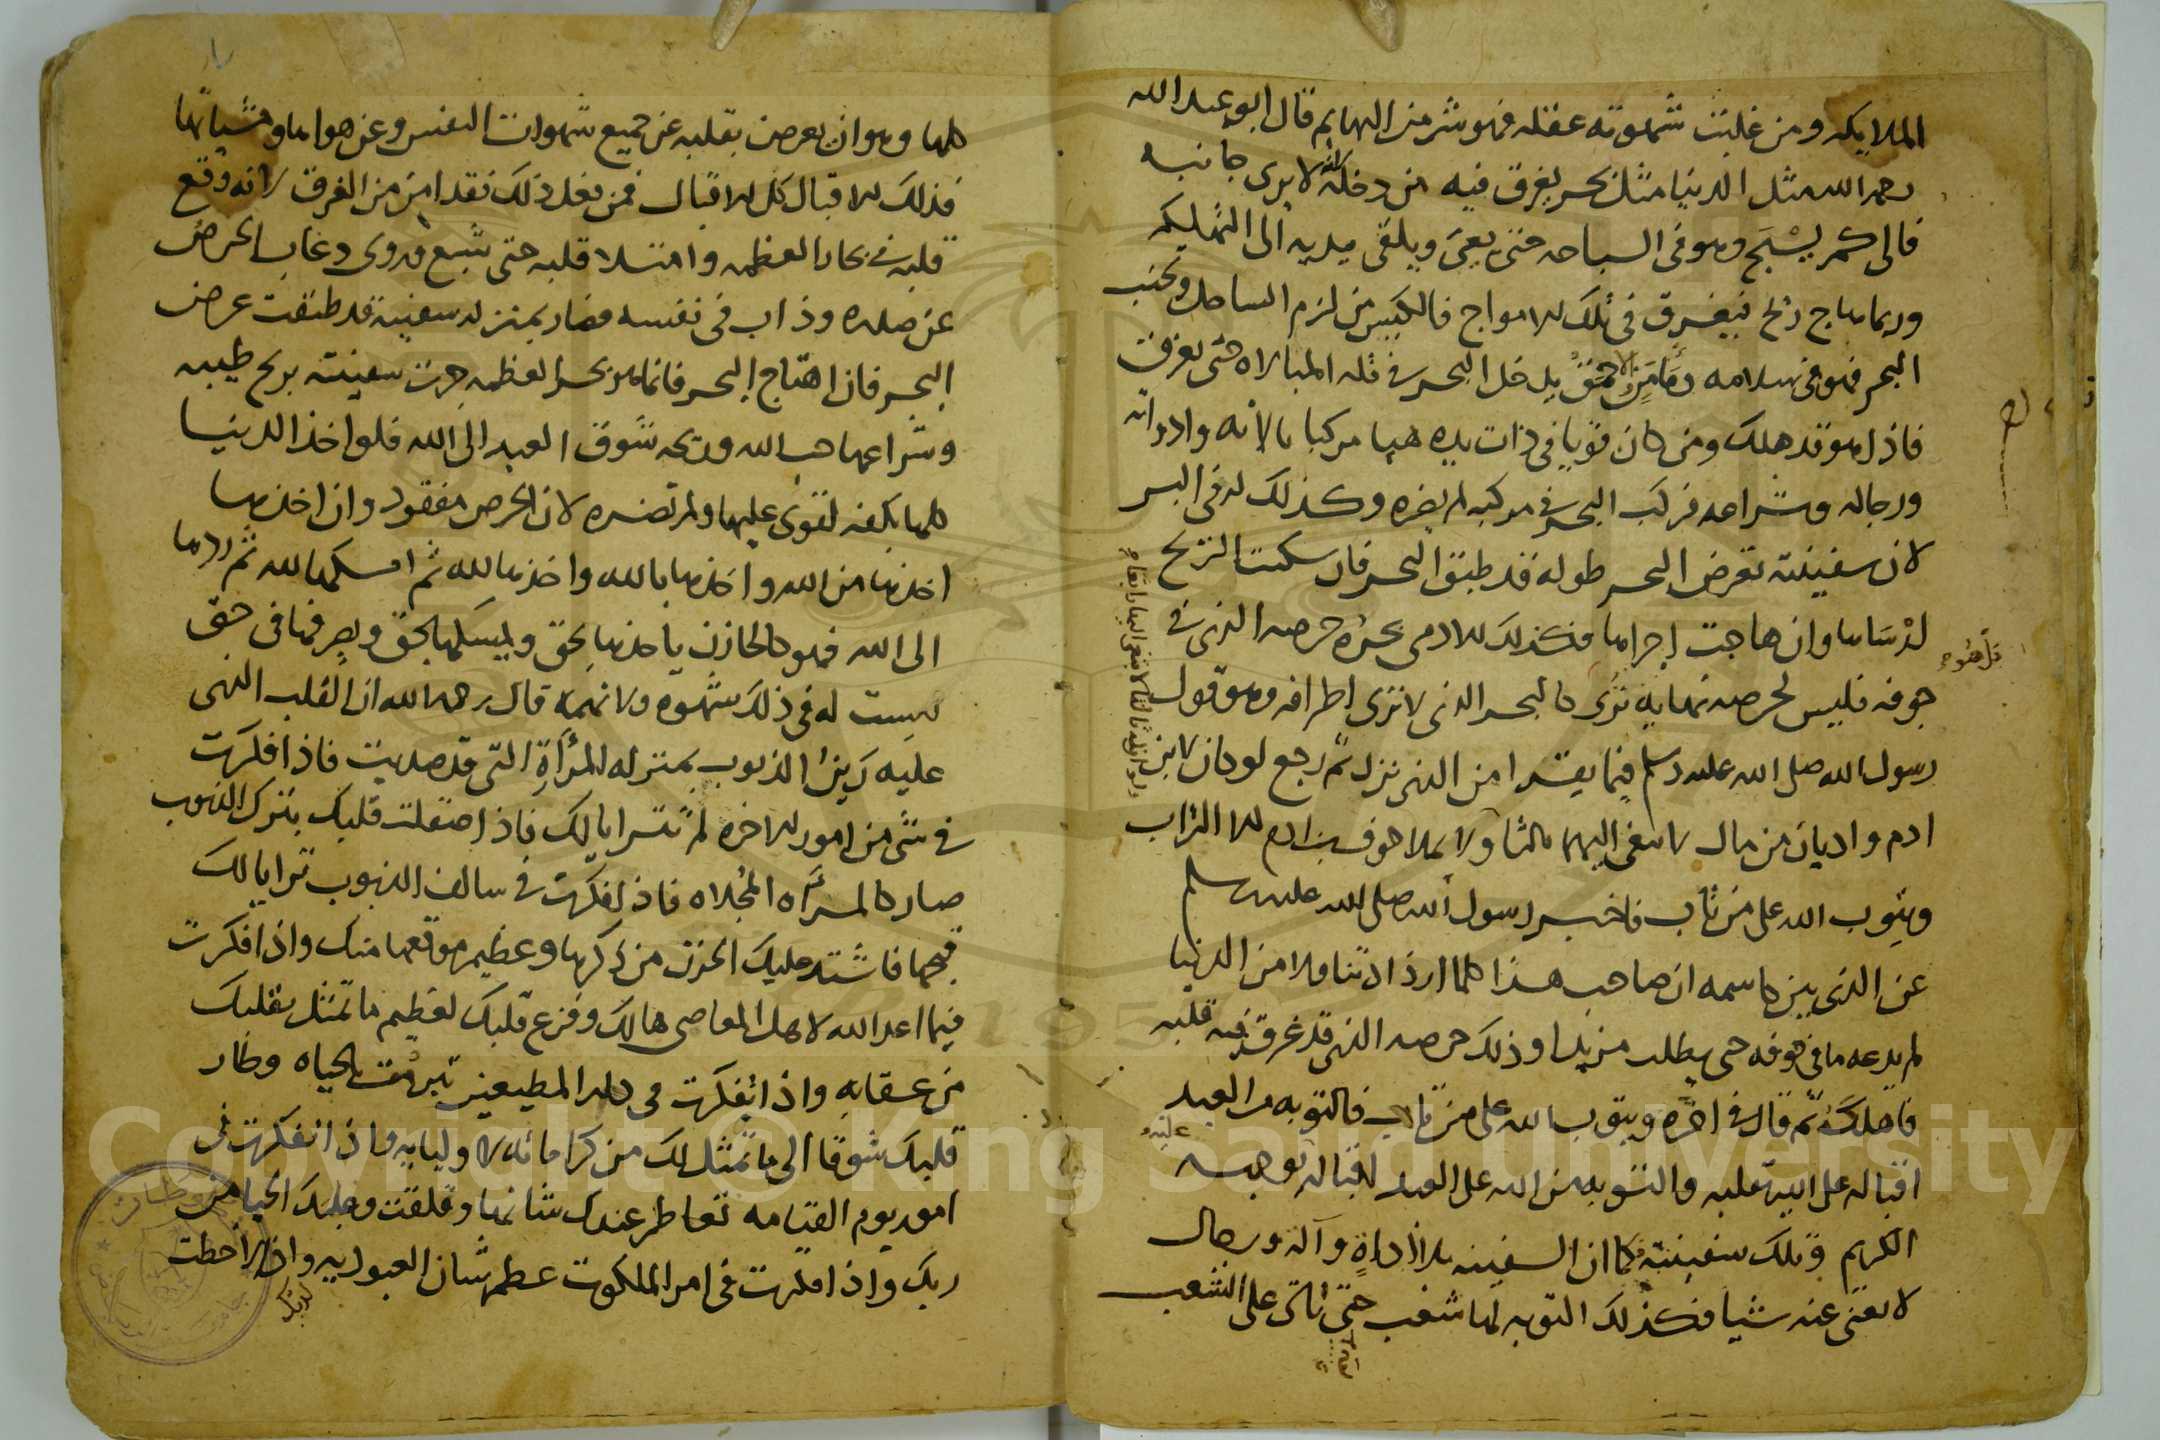 الملايكه ومن غلبت شهوته عقله فهو شر من البهايم قال ابو عبد الله
رحمه الله مثل الدنيا مثل بحر يغرق فيه من دخله لانه لا يرى جانبه
فالى كم يسبح وهو في السباحه حتى يعيى ويلقى بيديه الى التهلكه
وربما هاج ريح فيغرق في تلك الامواج فالكيس من لزم الساحل وتجنب
البحر فهو في سلامه ومن الاحمق يدخل البحر في قله المبالاه حتى يغرق
فاذا هو قد هلك ومن كان قويا في ذات يده هيا مركبا بالاته وادواته
ورجاله وشراعه فركب البحر في مركبه لم يضره وكذلك له في البر
لان سفينته تعرض البحر طوله قد طبق البحر فان سكنت الريح
ارساها وان هاجت اجراها فكذلك الادمي بحره حرصه الذي في
جوفه فليس لحرصه نهايه ترى كالبحر الذي لا ترى اطرافه وهو قول
رسول الله صلى الله عليه وسلم فيما يقرا من الذي نزل ثم رجع لو كان لابن
ادم واديان من مال لابتغى اليهما ثالثا ولا يملا جوف بن ادم الا التراب
ويتوب الله على من تاب فاخبر رسول الله صلى الله عليه وسلم
عن الذي بين كاسمه ان صاحب هذا كلما ازداد تناولا من الدنيا
لم يدعه ما في جوفه حتى يطلب مزيدا وذلك حرصه الذي قد غرق فيه قلبه
فاهلكه ثم قال في اخره ويتوب الله على من تاب فالتوبه من العبد
اقباله على الله بقلبه والتوبه من الله على العبد اقباله بوجهه
الكريم عليه وتلك سفينته فكما ان السفينه بلا اداة وآله ورجال
لا تغني عنه شيا فكذلك التوبه لها شعب حتى تاتى على الشعب
كلها وهو ان يعرض بقلبه عن جميع شهوات النفس وعن هواها ومشياتها
فذلك الاقبال كل الاقبال فمن فعل ذلك فقد امن من الغرق لانه وقع
قلبه في بحار العظمه وامتلا قلبه حتى شبع وروى وغاب الحرص
عن صدره وذاب في نفسه فصار بمنزله سفينه قد طبقت عرض
البحر فان اهتاج البحر فانما هو بحر العظمه جرت سفينته بريح طيبه
وشراعها حب الله وريحه شوق العبد الى الله فلو اخذ الدنيا
كلها بكفه لقوى عليها ولم تضره لان الحرص مفقود وان اخذها
اخذها من الله واخذها بالله واخذها لله ثم امسكها لله ثم ردها
الى الله فهو كالخازن ياخذها بحق ويمسكها بحق ويصرفها في حق
ليست له في ذلك شهوه ولا نهمه قال رحمه الله ان القلب الذي
عليه رين الذنوب بمنزله المرآة التي قد صديت فاذا فكرت
في شي من امور الاخره لم يترايا لك فاذا صقلت قلبك بترك الذنوب
صار كالمرآه المجلاه فاذا فكرت في سالف الذنوب ترايا لك
قبحها فاشتد عليك الحزن من ذكرها وعظيم موقعها منك واذا فكرت
فيما اعد الله لاهل المعاصي هالك وفزع قلبك لعظيم ما تمثل بقلبك
من عقابه واذا تفكرت في دار المطيعين تبرمت بالحياه وطار
قلبك شوقا الى ما تمثل لك من كراماته لاوليايه واذا تفكرت في
امور يوم القيامه تعاظم عندك شانها وقلقت وجلك الحيا من
ربك واذا فكرت في امر الملكوت عظم شان العبوديه واذا لاحظت